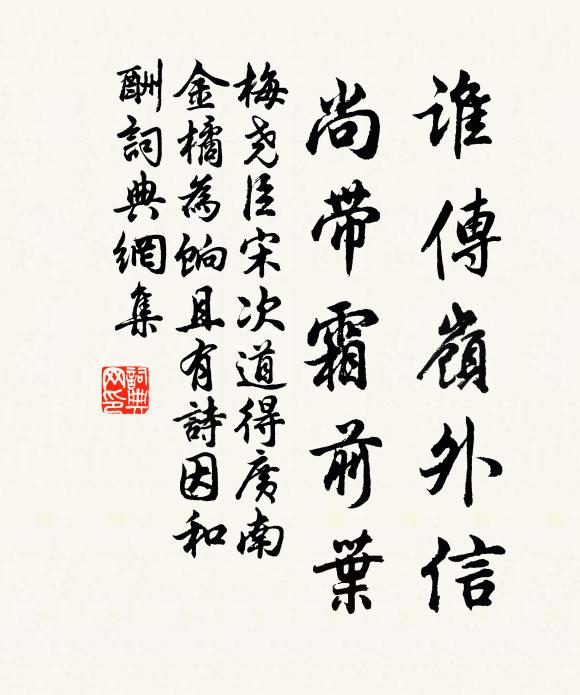 誰傳嶺外信
尚帶霜前葉
梅堯臣宋次道得廣南
金橘為餉且有詩因和
酬詞典網集
詞典
网印